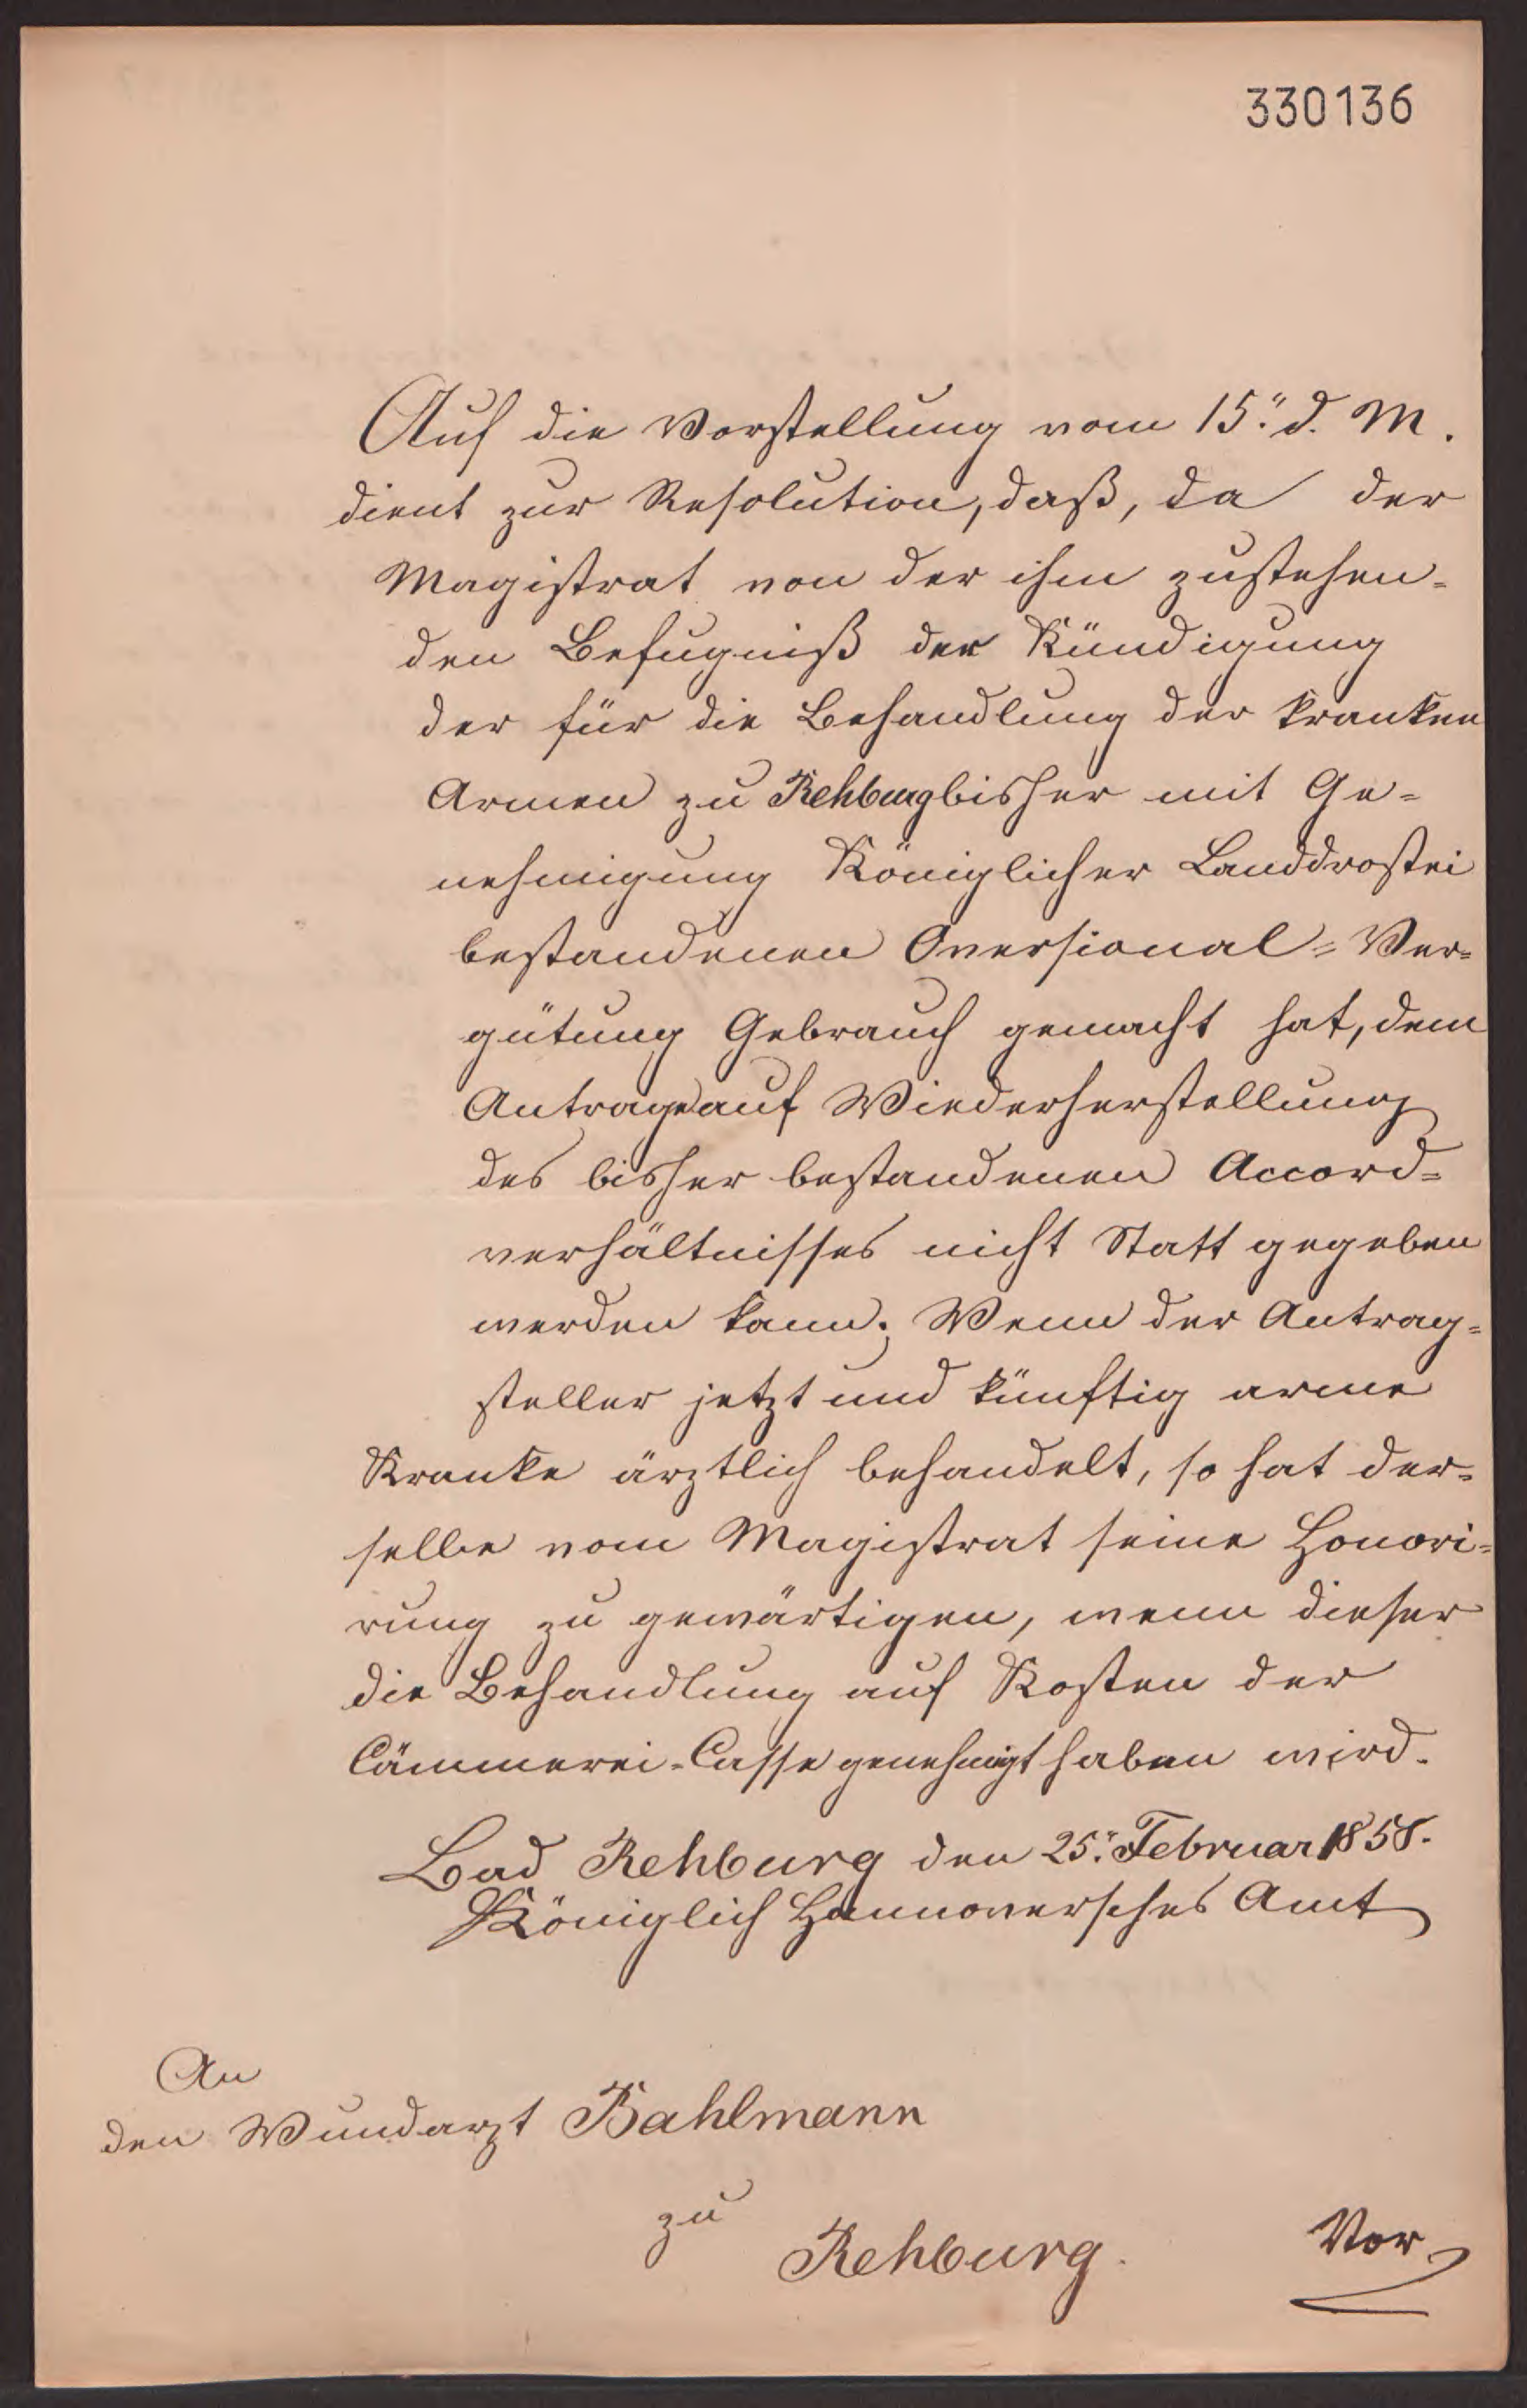 330136
Auf die Vorstellung vom 15.ᵗ d. M.
dient zur Resolution, daß, da der
Magistrat von der ihm zustehen=
den Befugniß der Kündigung
der für die Behandlung der kranken
Armen zu Rehburg bisher mit Ge=
nehmigung Königlicher Landdrostei
bestandenen Aversional=Ver=
gütung Gebrauch gemacht hat, dem
Antrage auf Wiederherstellung
des bisher bestandenen Accord=
verhältnisses nicht Statt gegeben
werden kann. Wenn der Antrag=
steller jetzt und künftig arme
Kranke ärztlich behandelt, so hat der=
selbe vom Magistrat seine Honori=
rung zu gewärtigen, wenn dieser
die Behandlung auf Kosten der
Cämmerei-Casse genehmigt haben wird.
Bad Rehburg den 25. Februar 1858.
Königlich Hannoversches Amt
An
den Wundarzt Bahlmann
zu
Rehburg.
Vor